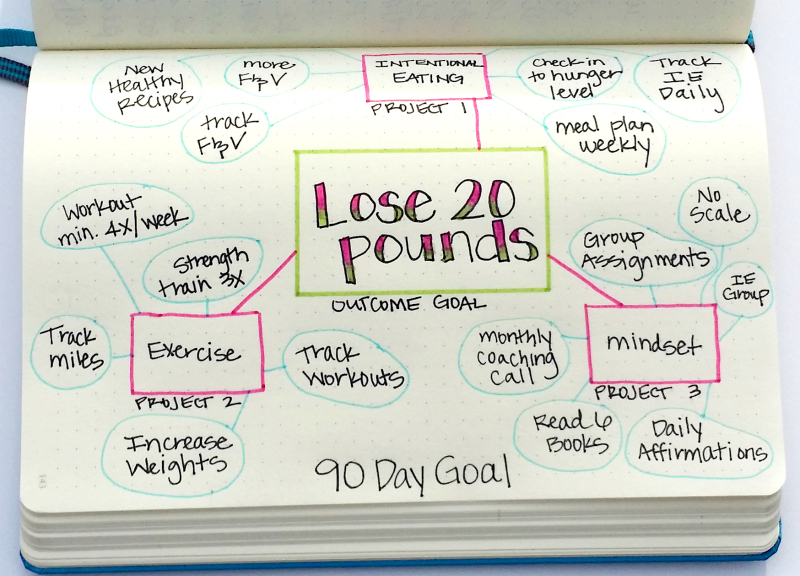 New
Healthy
Recipes
more
F & V
track
F & V
INTENTIONAL
EATING
PROJECT 1
Check-in
to hunger
level
Track
IE
Daily
meal plan
weekly
Lose 20
pounds
OUTCOME GOAL
Workout
min. 4x/week
Strength
train 3x
Track
miles
Exercise
PROJECT 2
Track
Workouts
Increase
Weights
No
Scale
Group
Assignments
IE
Group
monthly
coaching
call
mindset
PROJECT 3
Read 6
Books
Daily
Affirmations
90 Day Goal